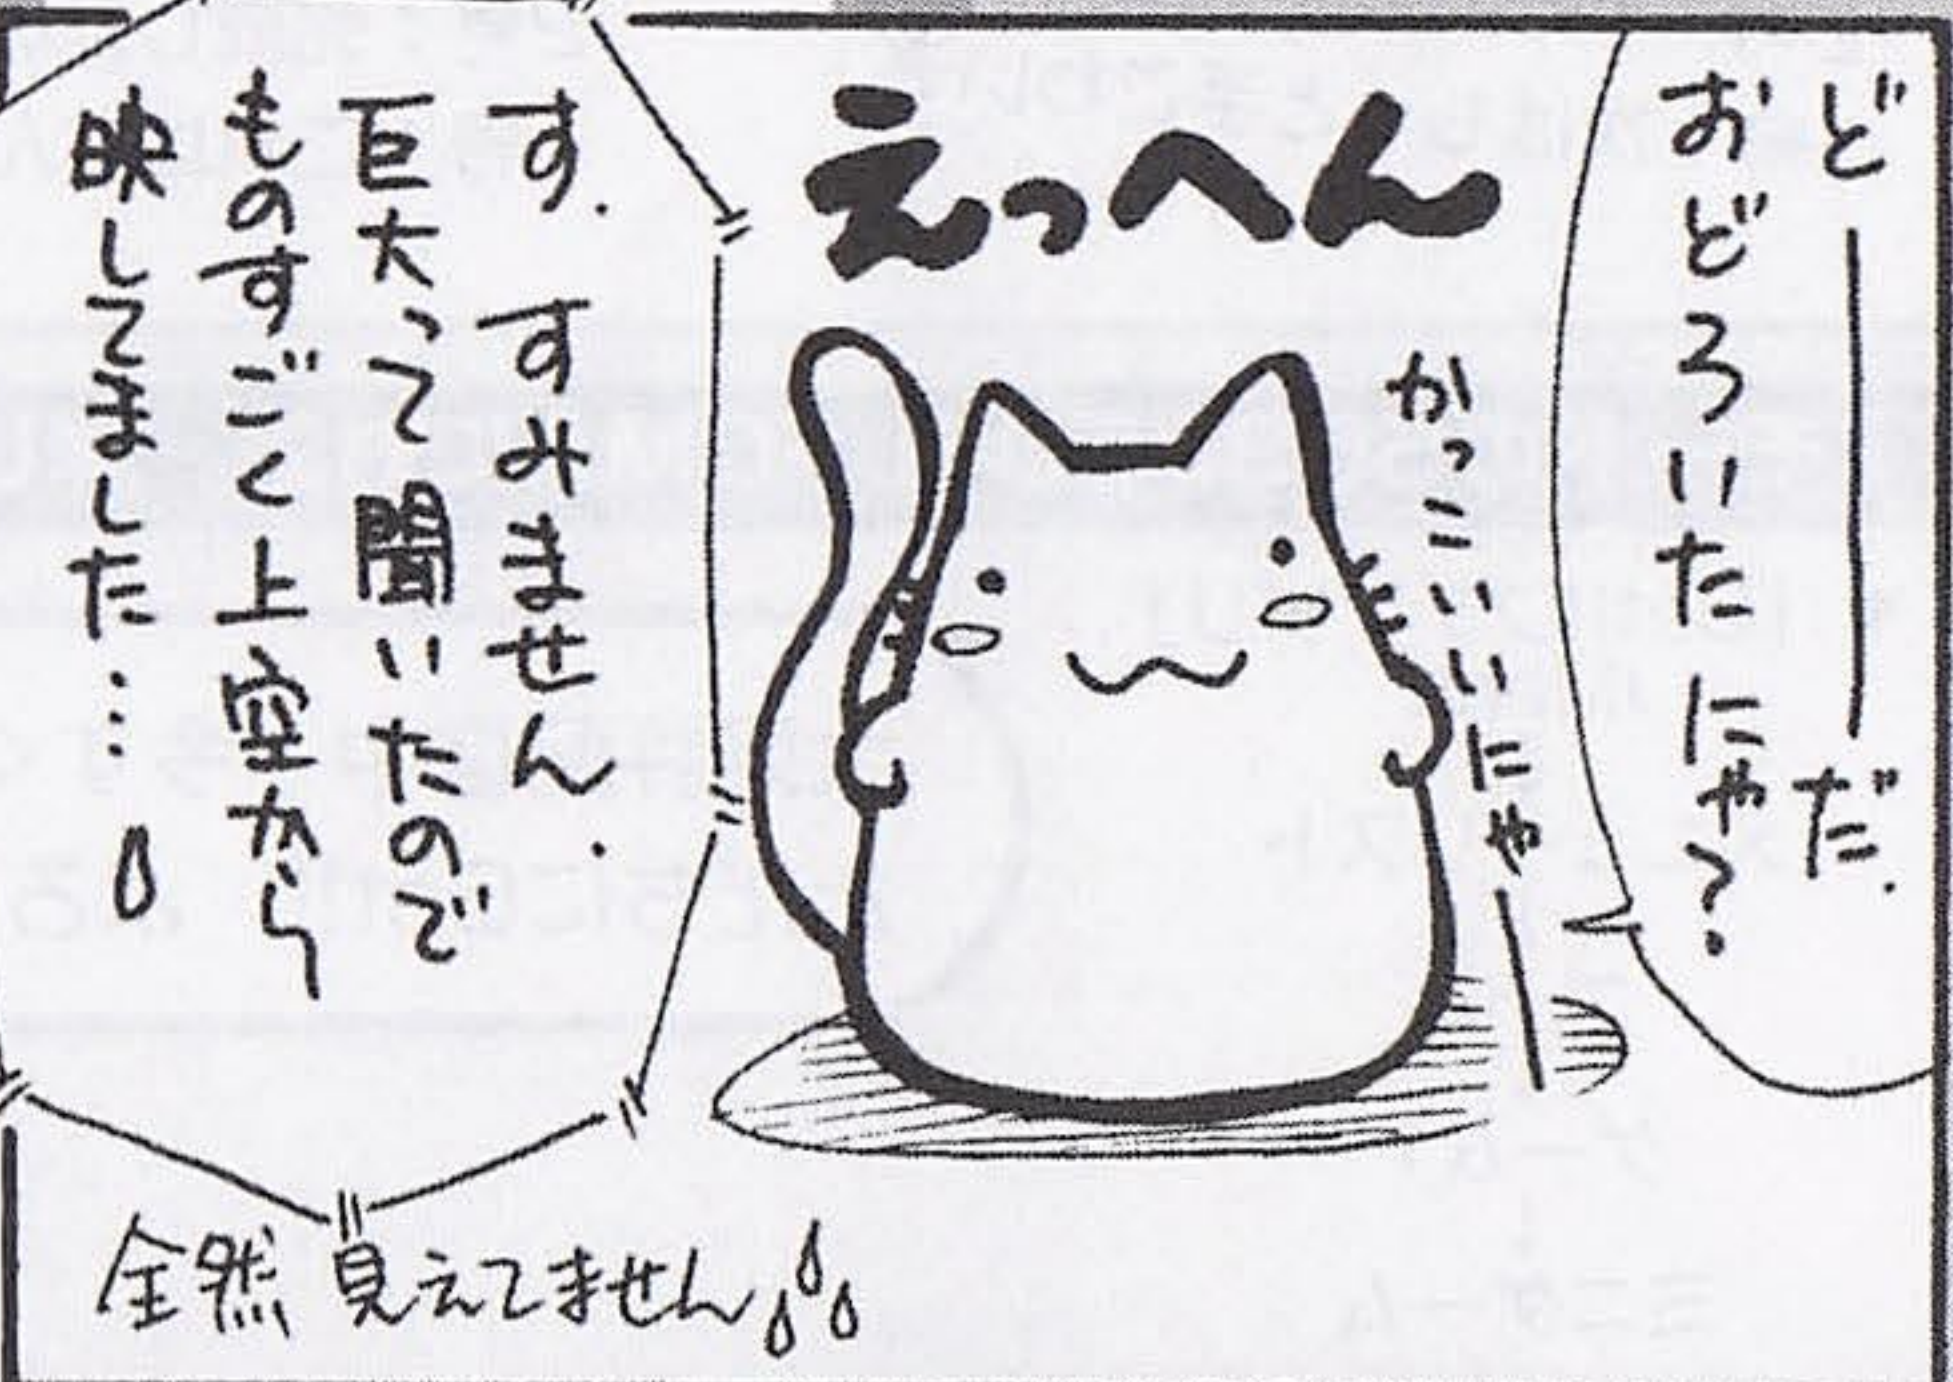 ど――――だ.
おどろいたにゃ?
えっへん
かっこいいにゃ――
す.すみません.
巨大って聞いたので
ものすごく上空から
映してました…
全然見えてません